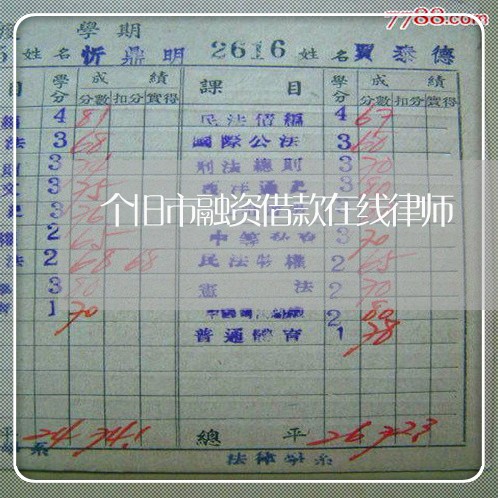 7788.com
學期
姓名 忻鼎明 2616 姓名 賈泰德
目 學分 成績 課目 學分 成績
分數 扣分 實得 分數 扣分 實得
4 81 民法債編 4 67
法 3 68 國際公法 3 60
3 刑法總則 3 70
3 75 3 80
3 76 3
個旧市融资借款在线律师
2 65 3 70
法 2 68 68 民法物權 2 65
3 80 憲法 2 70
1 70 2 80
普通體育 1 78
平 24 74.1 總平 26 72.3
系 法律學系